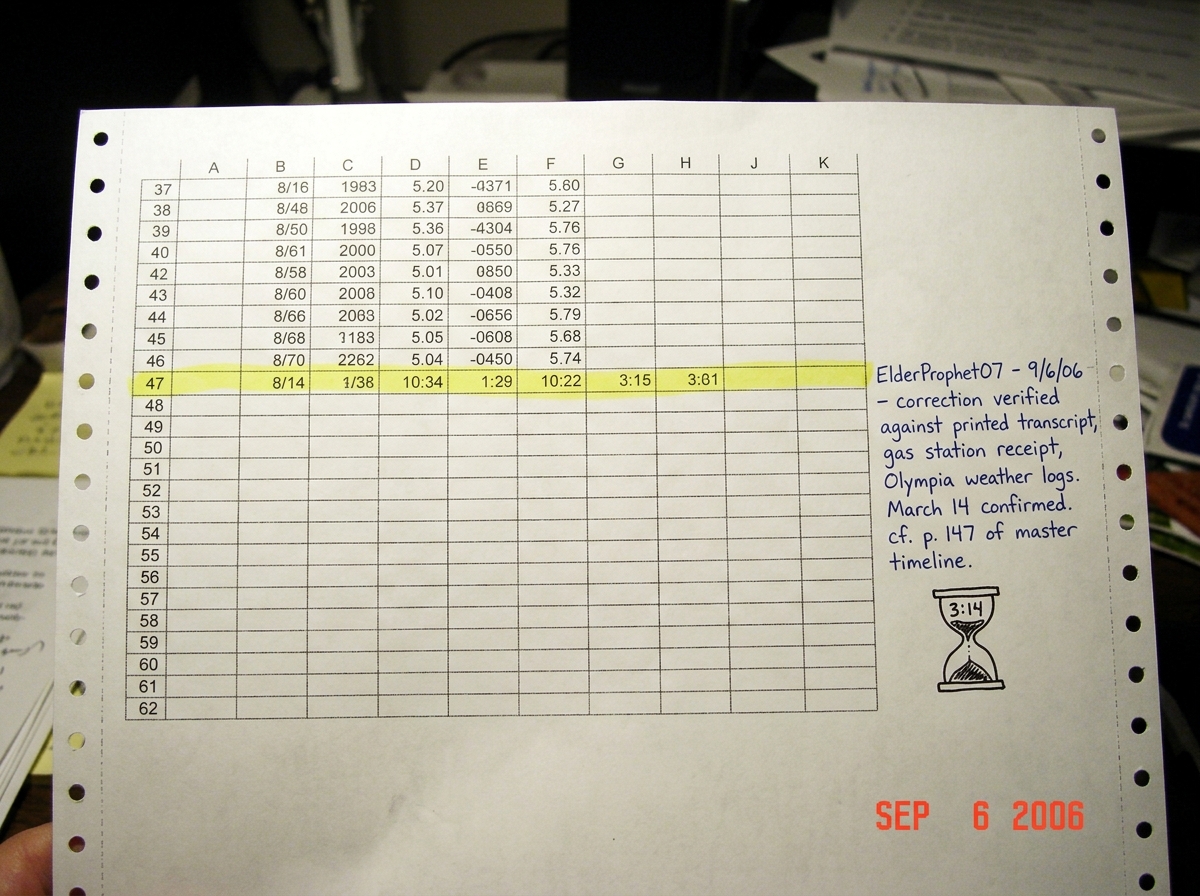 A B C D E F G H J K
37 8/16 1983 5.20 -0371 5.60
38 8/48 2006 5.37 0869 5.27
39 8/50 1998 5.36 -4304 5.76
40 8/61 2000 5.07 -0550 5.76
42 8/58 2003 5.01 0850 5.33
43 8/60 2008 5.10 -0408 5.32
44 8/66 2003 5.02 -0656 5.79
45 8/68 1183 5.05 -0608 5.68
46 8/70 2262 5.04 -0450 5.74
47 8/14 1/38 10:34 1:29 10:22 3:15 3:81
48
49
50
51
52
53
54
55
56
57
58
59
60
61
62
ElderProphet07 - 9/6/06
- correction verified
against printed transcript,
gas station receipt,
Olympia weather logs.
March 14 confirmed.
cf. p. 147 of master
timeline.
3:14
SEP 6 2006